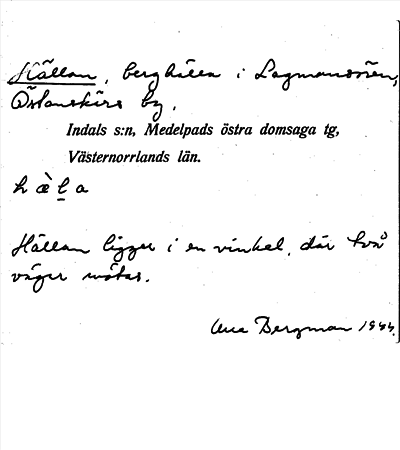 Hällan, berghälla i Lagmansören,
Östanskärs by.
Indals s:n, Medelpads östra domsaga tg,
Västernorrlands län.
hæ̀l̠a
Hällan ligger i en vinkel, där två
vägar mötas.
Bergman 1944.